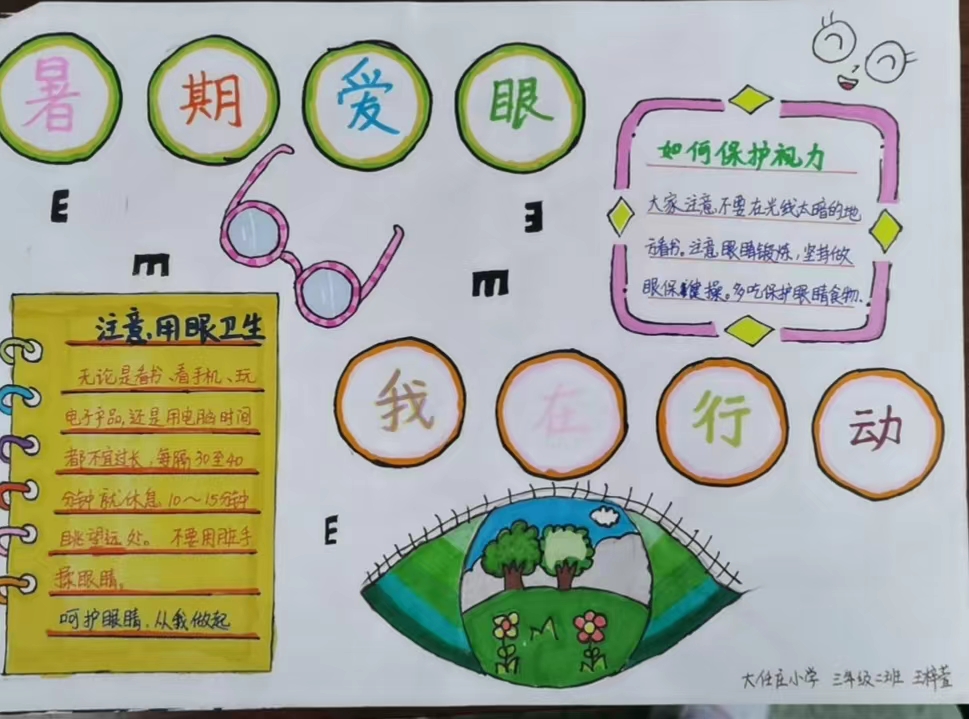 暑期爱眼
E
E
E
E
如何保护视力
大家注意,不要在光线太暗的地
方看书。注意眼睛锻炼,坚持做
眼保健操。多吃保护眼睛食物.
注意,用眼卫生
无论是看书、看手机、玩
电子产品,还是用电脑时间
都不宜过长,每隔30至40
分钟就休息10～15分钟
眺望远处。 不要用脏手
揉眼睛。
呵护眼睛,从我做起
我在行动
E
大任庄小学 三年级二班 王梓萱